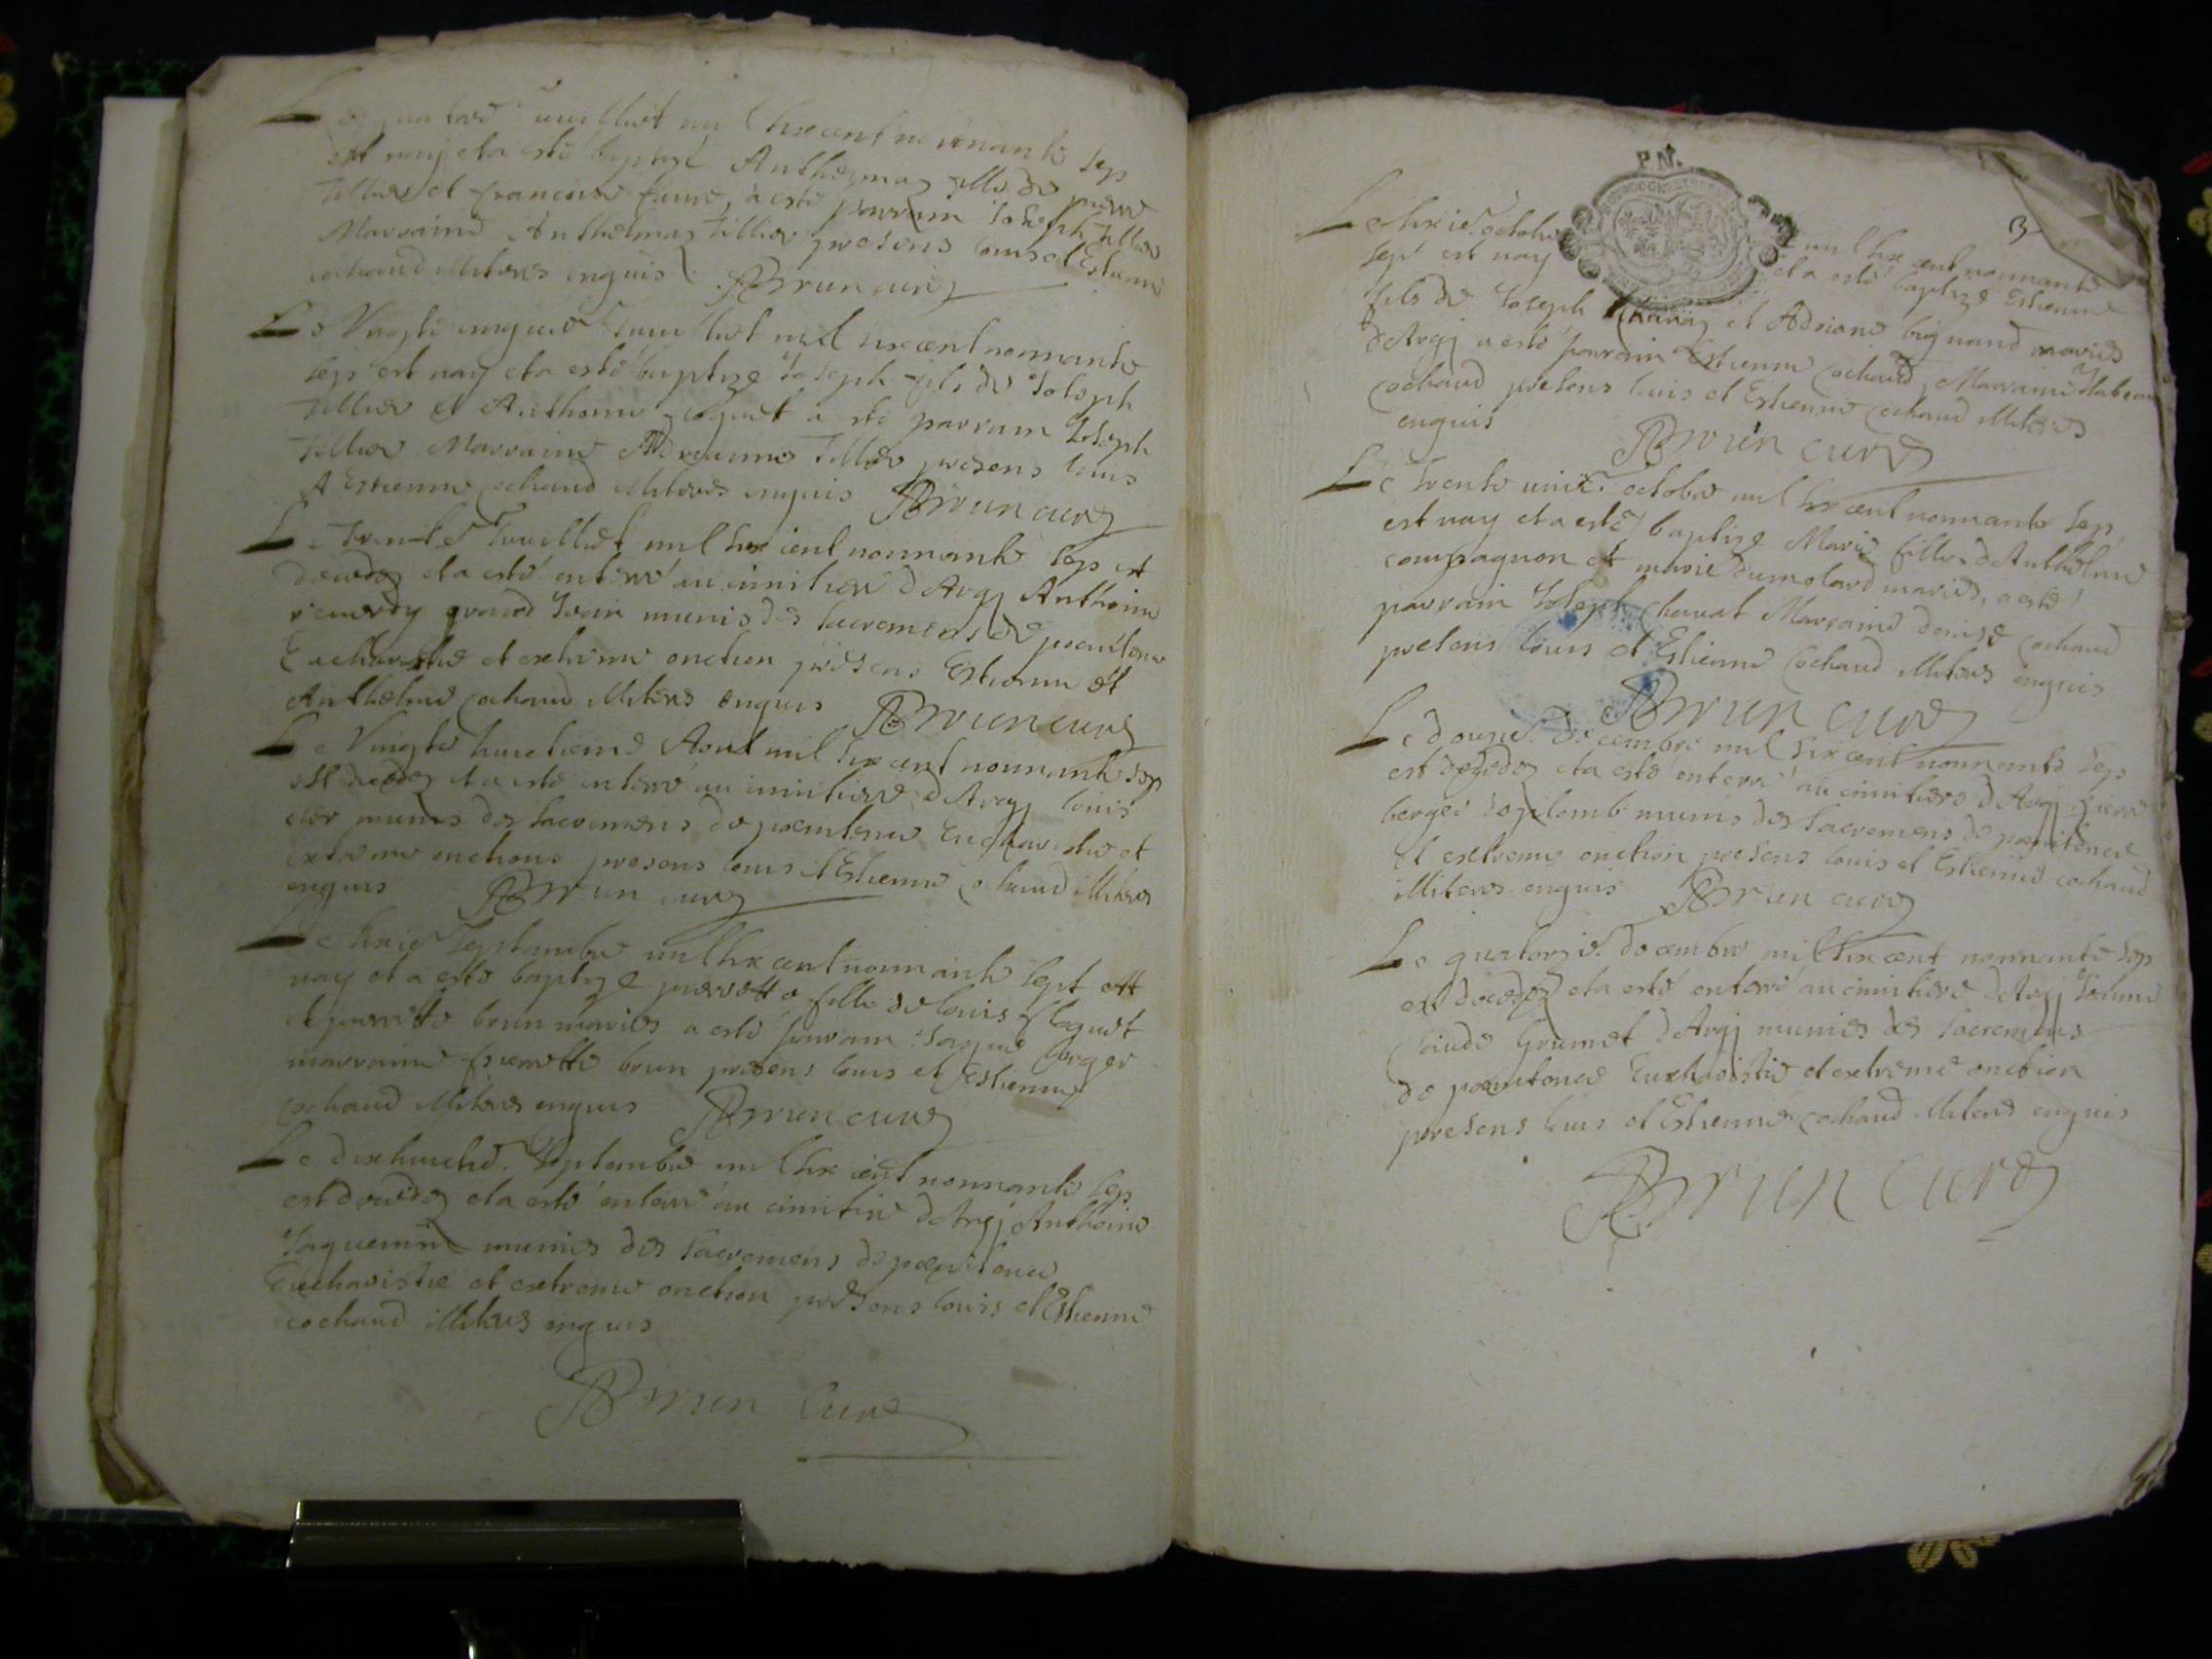 Le quatorze Juillet mil six cent nonnante sep
est nay et a esté baptizé Anthelma fille de pierre
Tillier et francoise faure, a esté parrain Joseph Tillier
Marraine Anthelma Tillier presens louis et Estienne
cochand illiteres enquis. Brun curé
Le Vingte cinquie Juillet mil six cent nonnante
sep est nay et a esté baptizé Joseph fils de Joseph
Tillier et Anthoine a esté parrain Joseph
Tillier Marraine Adrianne Tillier presens louis
et Estienne cochand illiteres enquis Brun curé
Le Trente Juillet mil six cent nonnante sep est
decedez et a esté enterré au cimitiere d'Argj Anthoine
grand Jean munis des sacremens de poenitence
Eucharistie et extreme onction presens Estienne et
Anthelme cochand illiteres enquis Brun curé
Le Vingte huictieme Aout mil six cent nonnante sep
est decedez et a esté enterré au cimitiere d'Argj louis
munis des sacremens de poenitence Eucharistie et
extreme onctions presens louis et Estienne cochand illiteres
enquis Brun curé
Le sixie Septembre mil six cent nonnante sept est
nay et a esté baptizé pierrette fille de louis
et pierrette brun mariés a esté parrain Jaque berger
marraine pierrette brun presens louis et Estienne
cochand illiteres enquis Brun curé
Le dixhuictie. Septembre mil six cent nonnante sep
est decedez et a esté enterré au cimitiere d'Argj Anthoine
Jaquemin munies des sacremens de poenitence
Eucharistie et extreme onction presens louis et Estienne
cochand illiteres enquis
Brun Curé
P.N.
3
Le sixie. octobre mil six cent nonnante
sept est nay et a esté baptizé Estienne
fils de Joseph et Adriane mariés
d'Argj a esté parrain Estienne cochand, Marraine Isabeau
cochand presens louis et Estienne cochand illiteres
enquis Brun curé
Le Trente unie. octobre mil six cent nonnante sep
est nay et a esté baptizé Marie fille d'Anthelme
compagnon et marie dumolard mariés, a esté
parrain Joseph Marraine denise cochand
presens louis et Estienne cochand illiteres enquis
Brun curé
Le douzie. decembre mil six cent nonnante sep
est decedez et a esté enterré au cimitiere d'Argj pierre
berger munis des sacremens de poenitence
et extreme onction presens louis et Estienne cochand
illiteres enquis Brun curé
Le quatorzie. decembre mil six cent nonnante sep
est decedez et a esté enterré au cimitiere d'Argj
Grumet d'Argj munies des sacremens
de poenitence Euchaistie et extreme onction
presens louis et Estienne cochand illiteres enquis
Brun Curé